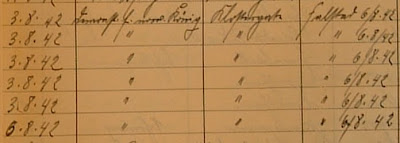 3.8.42 f. norw. König Klostergate Halstad 6/8.42
3.8.42 " " " 6.8/42
3.8.42 " " " 6/8.42
3.8.42 " " " 6/8.42
3.8.42 " " " 6/8.42
5.8.42 " " " 6/8.42